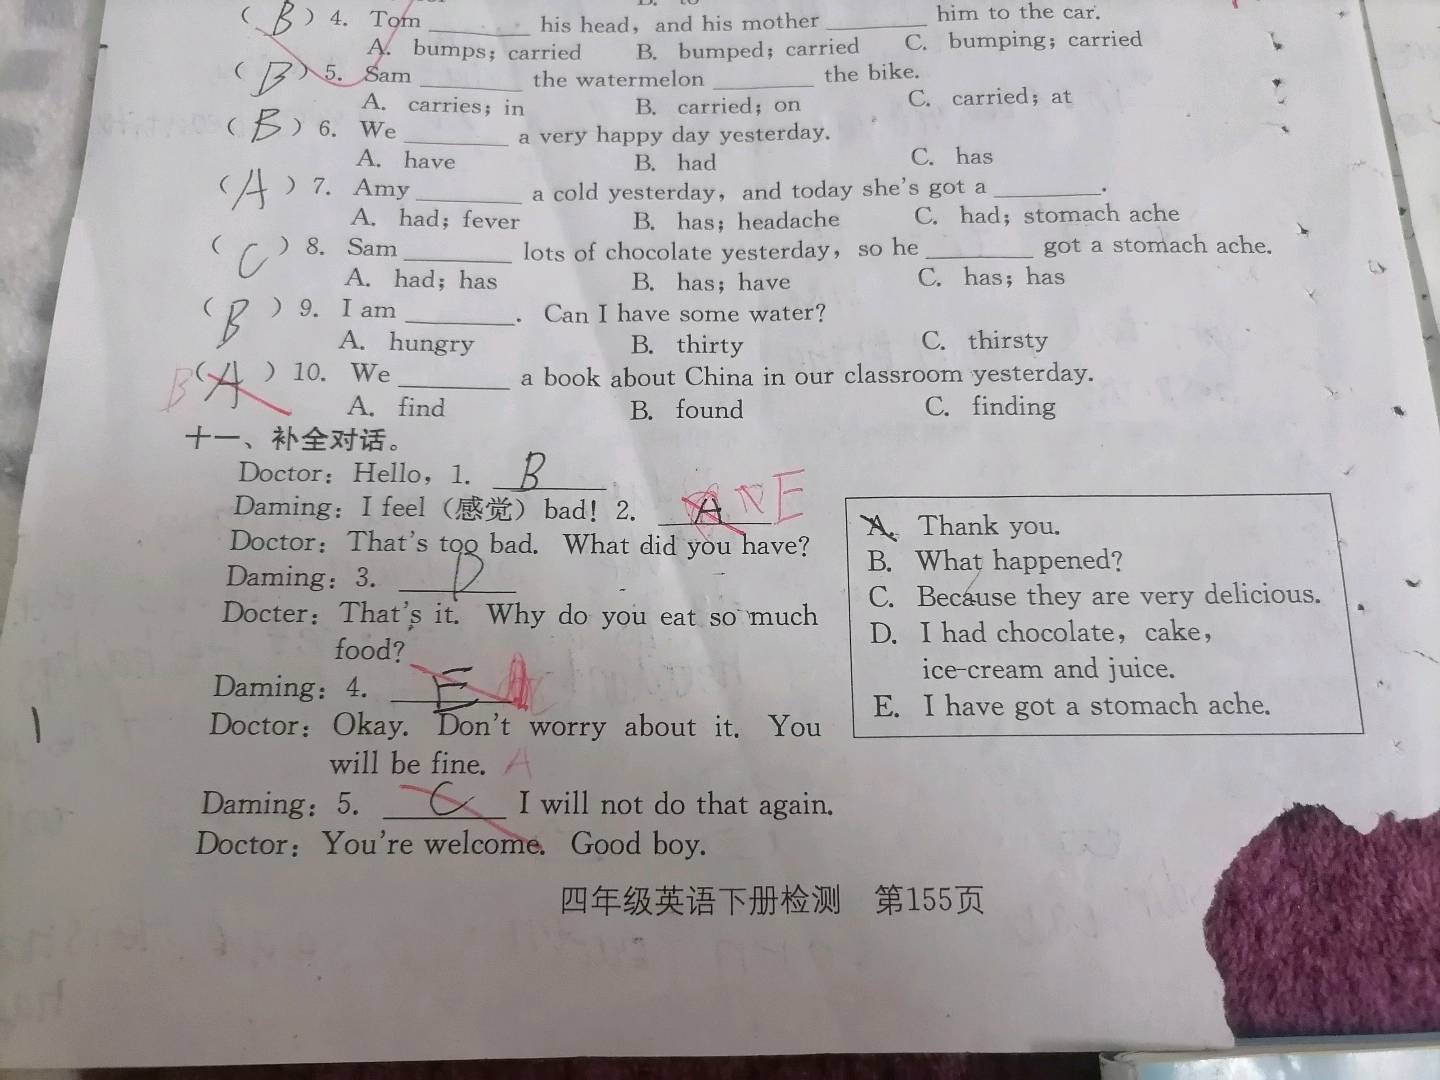 ( B ) 4. Tom ________ his head, and his mother ________ him to the car.
A. bumps; carried B. bumped; carried C. bumping; carried
( B ) 5. Sam ________ the watermelon ________ the bike.
A. carries; in B. carried; on C. carried; at
( B ) 6. We ________ a very happy day yesterday.
A. have B. had C. has
( A ) 7. Amy ________ a cold yesterday, and today she's got a ________.
A. had; fever B. has; headache C. had; stomach ache
( C ) 8. Sam ________ lots of chocolate yesterday, so he ________ got a stomach ache.
A. had; has B. has; have C. has; has
( B ) 9. I am ________. Can I have some water?
A. hungry B. thirty C. thirsty
B ( A ) 10. We ________ a book about China in our classroom yesterday.
A. find B. found C. finding
十一、补全对话。
Doctor: Hello, 1. B .
Daming: I feel (感觉) bad! 2. A E
Doctor: That's too bad. What did you have?
Daming: 3. D .
Docter: That's it. Why do you eat so much
food?
Daming: 4. E A
Doctor: Okay. Don't worry about it. You
will be fine. A
Daming: 5. C I will not do that again.
Doctor: You're welcome. Good boy.
A. Thank you.
B. What happened?
C. Because they are very delicious.
D. I had chocolate, cake,
ice-cream and juice.
E. I have got a stomach ache.
四年级英语下册检测 第155页